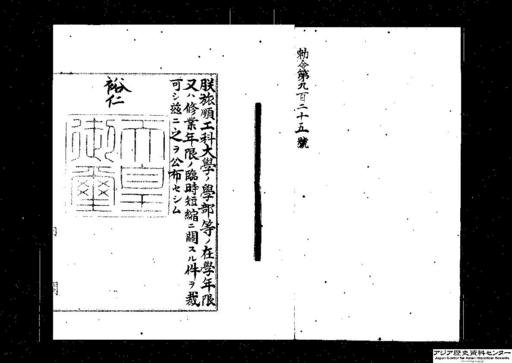 勅令第九百二十五號
朕旅順工科大學ノ學部等ノ在學年限
又ハ修業年限ノ臨時短縮ニ關スル件ヲ裁
可シ茲ニ之ヲ公布セシム
裕仁
天皇御璽
アジア歴史資料センター
Japan Center for Asian Historical Records